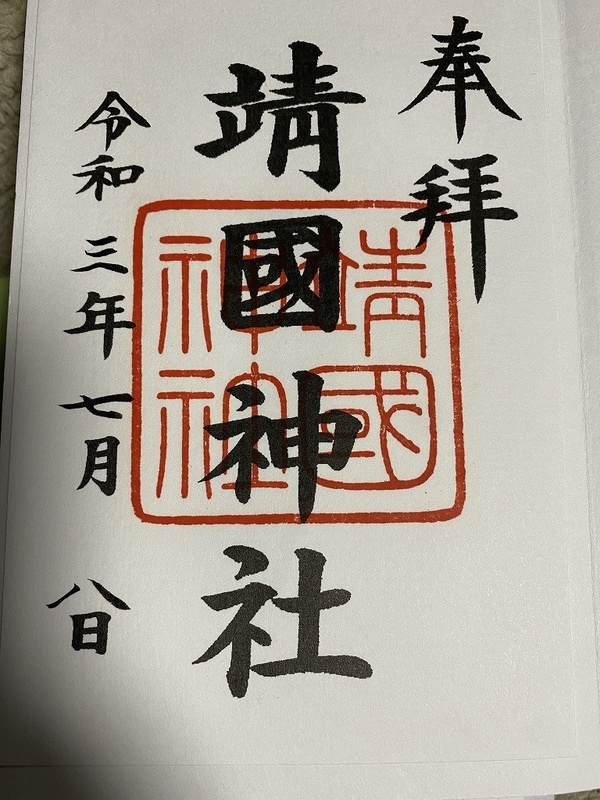 奉拝
靖國神社
靖國神社
令和三年七月八日